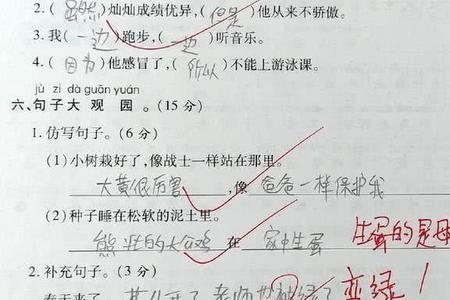 2.(虽然)灿灿成绩优异,(但是)他从来不骄傲。
3.我(一边)跑步,(一边)听音乐。
4.(因为)他感冒了,(所以)不能上游泳课。
jù zi dà guān yuán
六、句子大观园。(15分)
1.仿写句子。(6分)
(1)小树栽好了,像战士一样站在那里。
大黄很厉害,像爸爸一样保护我
(2)种子睡在松软的泥土里。
熊壮的大公鸡在家中生蛋 生蛋的是母
2.补充句子。(3分)
春天来了 花儿开了 老师 绿了 变绿!